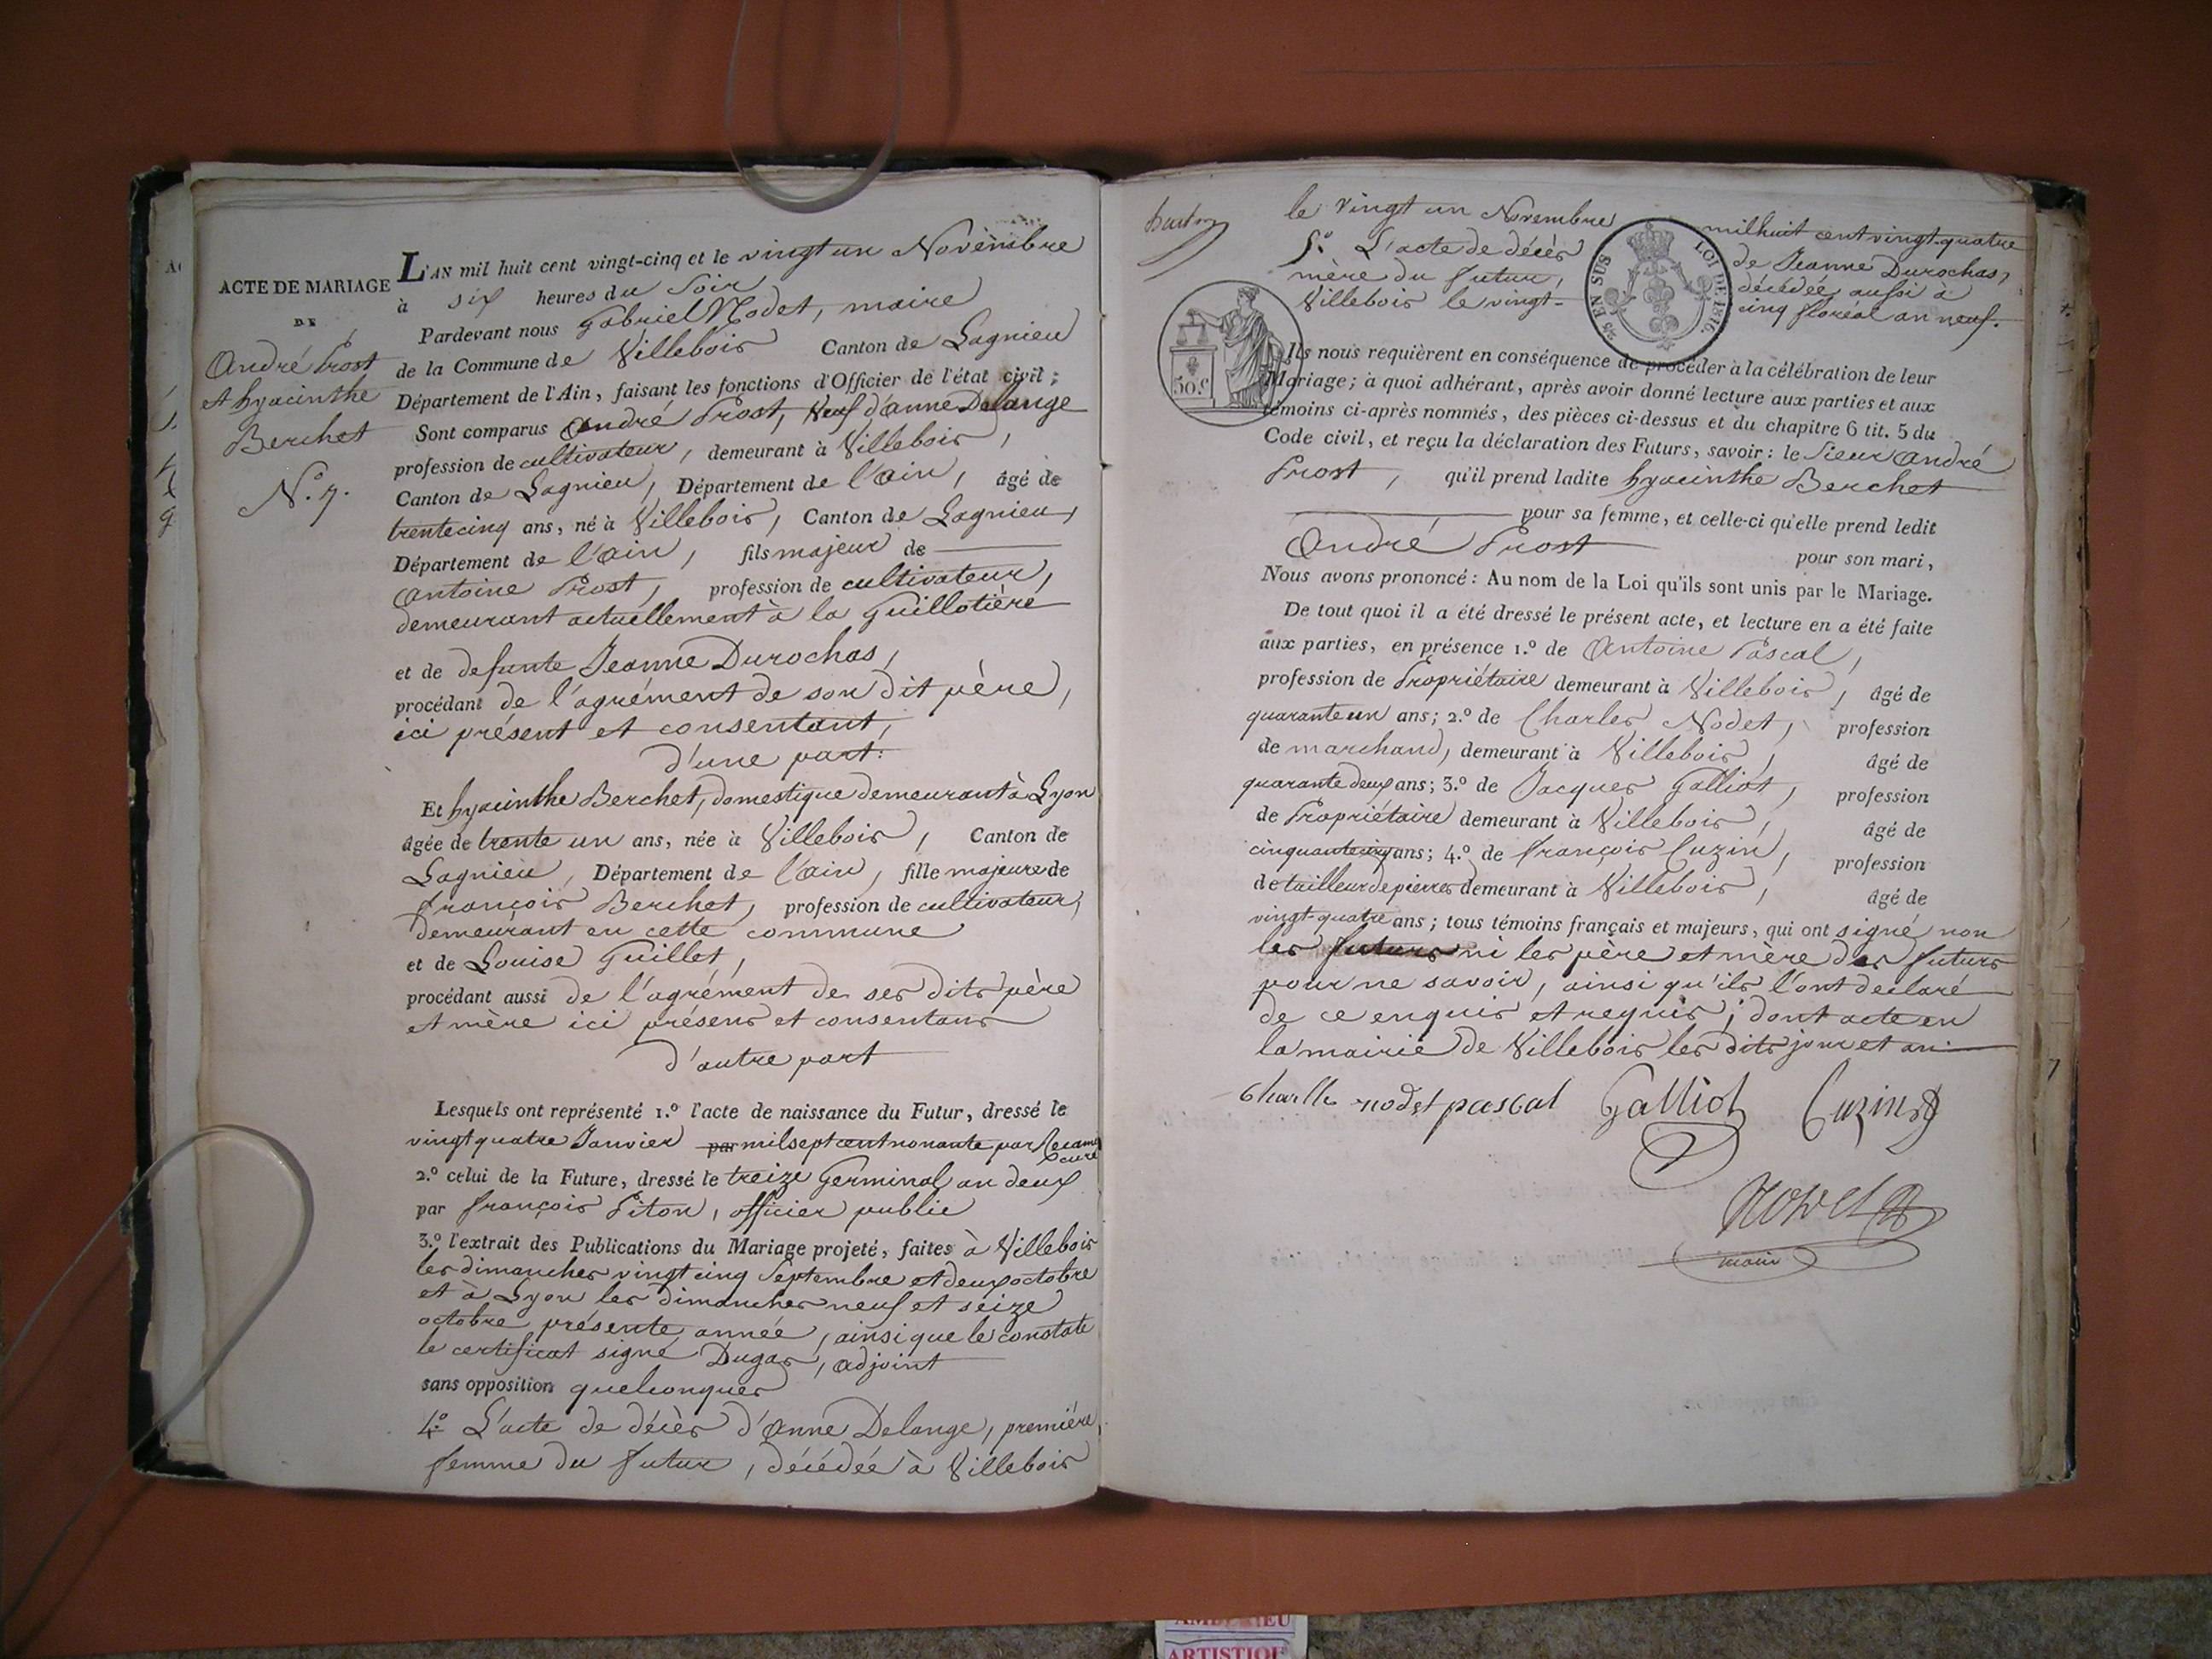 ACTE DE MARIAGE
DE
André Prost
et hyacinthe
Berchet
N.° 7.
L'AN mil huit cent vingt-cinq et le vingt un Novembre
à six heures du Soir
Pardevant nous Gabriel Nodet, maire
de la Commune de Villebois Canton de Lagnieu
Département de l'Ain, faisant les fonctions d'Officier de l'état civil;
Sont comparus André Prost, Veuf d'anne Delange
profession de cultivateur, demeurant à Villebois,
Canton de Lagnieu, Département de l'ain, âgé de
trente cinq ans, né à Villebois, Canton de Lagnieu,
Département de l'ain, fils majeur de
Antoine Prost, profession de cultivateur,
demeurant actuellement à la Guillotière
et de defunte Jeanne Durochas,
procédant de l'agrément de son dit père,
ici présent et consentant,
d'une part.
Et hyacinthe Berchet, domestique demeurant à Lyon
âgée de trente un ans, née à Villebois, Canton de
Lagnieu, Département de l'ain, fille majeure de
françois Berchet, profession de cultivateur,
demeurant en cette commune
et de Louise Guillet,
procédant aussi de l'agrément de ses dits père
et mère ici présens et consentans
d'autre part
Lesquels ont représenté 1.° l'acte de naissance du Futur, dressé le
vingt quatre Janvier par mil sept cent nonante par Récamier
curé
2.° celui de la Future, dressé le treize Germinal an deux
par françois Piton, officier public
3.° l'extrait des Publications du Mariage projeté, faites à Villebois
les dimanches vingt cinq Septembre et deux octobre
et à Lyon les dimanches neuf et seize
octobre présente année, ainsi que le constate
le certificat signé Dugas, adjoint
sans opposition quelconques
4.° L'acte de décès d'Anne Delange, première
femme du futur, décédée à Villebois
le vingt un Novembre mil huit cent vingt-quatre
5.° L'acte de décès de Jeanne Durochas,
mère du futur, décédée aussi à
Villebois le vingt-cinq floréal an neuf.
25 EN SUS LOI DE 1816.
50.c
Ils nous requièrent en conséquence de procéder à la célébration de leur
Mariage; à quoi adhérant, après avoir donné lecture aux parties et aux
témoins ci-après nommés, des pièces ci-dessus et du chapitre 6 tit. 5 du
Code civil, et reçu la déclaration des Futurs, savoir: le Sieur André
Prost, qu'il prend ladite hyacinthe Berchet
pour sa femme, et celle-ci qu'elle prend ledit
André Prost pour son mari,
Nous avons prononcé: Au nom de la Loi qu'ils sont unis par le Mariage.
De tout quoi il a été dressé le présent acte, et lecture en a été faite
aux parties, en présence 1.° de Antoine Pascal,
profession de Propriétaire demeurant à Villebois, âgé de
quarante un ans; 2.° de Charles Nodet, profession
de marchand, demeurant à Villebois, âgé de
quarante deux ans; 3.° de Jacques Galliot, profession
de Propriétaire demeurant à Villebois, âgé de
cinquante cinq ans; 4.° de françois Cuzin, profession
de tailleur de pierres demeurant à Villebois, âgé de
vingt-quatre ans; tous témoins français et majeurs, qui ont signé non
les futurs ni les père et mère des futurs
pour ne savoir, ainsi qu'ils l'ont déclaré
de ce enquis et requis; dont acte en
la mairie de Villebois les dits jour et an
Charlle nodet pascal Galliot Cuzin
Nodet
maire
ARTISTIQUE